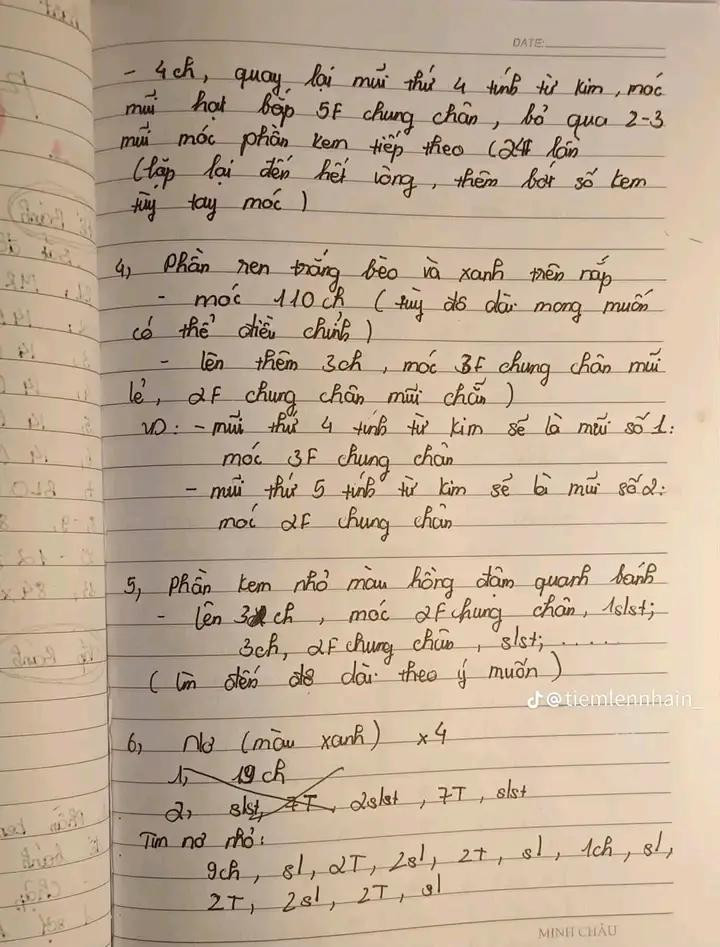 DATE:
- 4ch, quay lại mũi thứ 4 tính từ kim, móc
mũi hạt bắp 5F chung chân, bỏ qua 2-3
mũi móc phần kem tiếp theo (24 lần
(lặp lại đến hết vòng, thêm bớt số kem
tùy tay móc)
4, Phần ren trắng bèo và xanh trên nắp
- móc 110ch (tùy độ dài mong muốn
có thể điều chỉnh)
- lên thêm 3ch, móc 3F chung chân mũi
lẻ, 2F chung chân mũi chẵn)
VD: - mũi thứ 4 tính từ kim sẽ là mũi số 1:
móc 3F chung chân
- mũi thứ 5 tính từ kim sẽ là mũi số 2:
móc 2F chung chân
5, Phần kem nhỏ màu hồng đậm quanh bánh
- lên 3 ch, móc 2F chung chân, 1slst;
3ch, 2F chung chân, slst; .....
(làm đến độ dài theo ý muốn)
@tiemlennhain_
6, Nơ (màu xanh) x4
1, 19ch
2, slst, 7T, 2slst, 7T, slst
Tim nơ nhỏ:
9ch, sl, 2T, 2sl, 2T, sl, 1ch, sl,
2T, 2sl, 2T, sl
MINH CHÂU